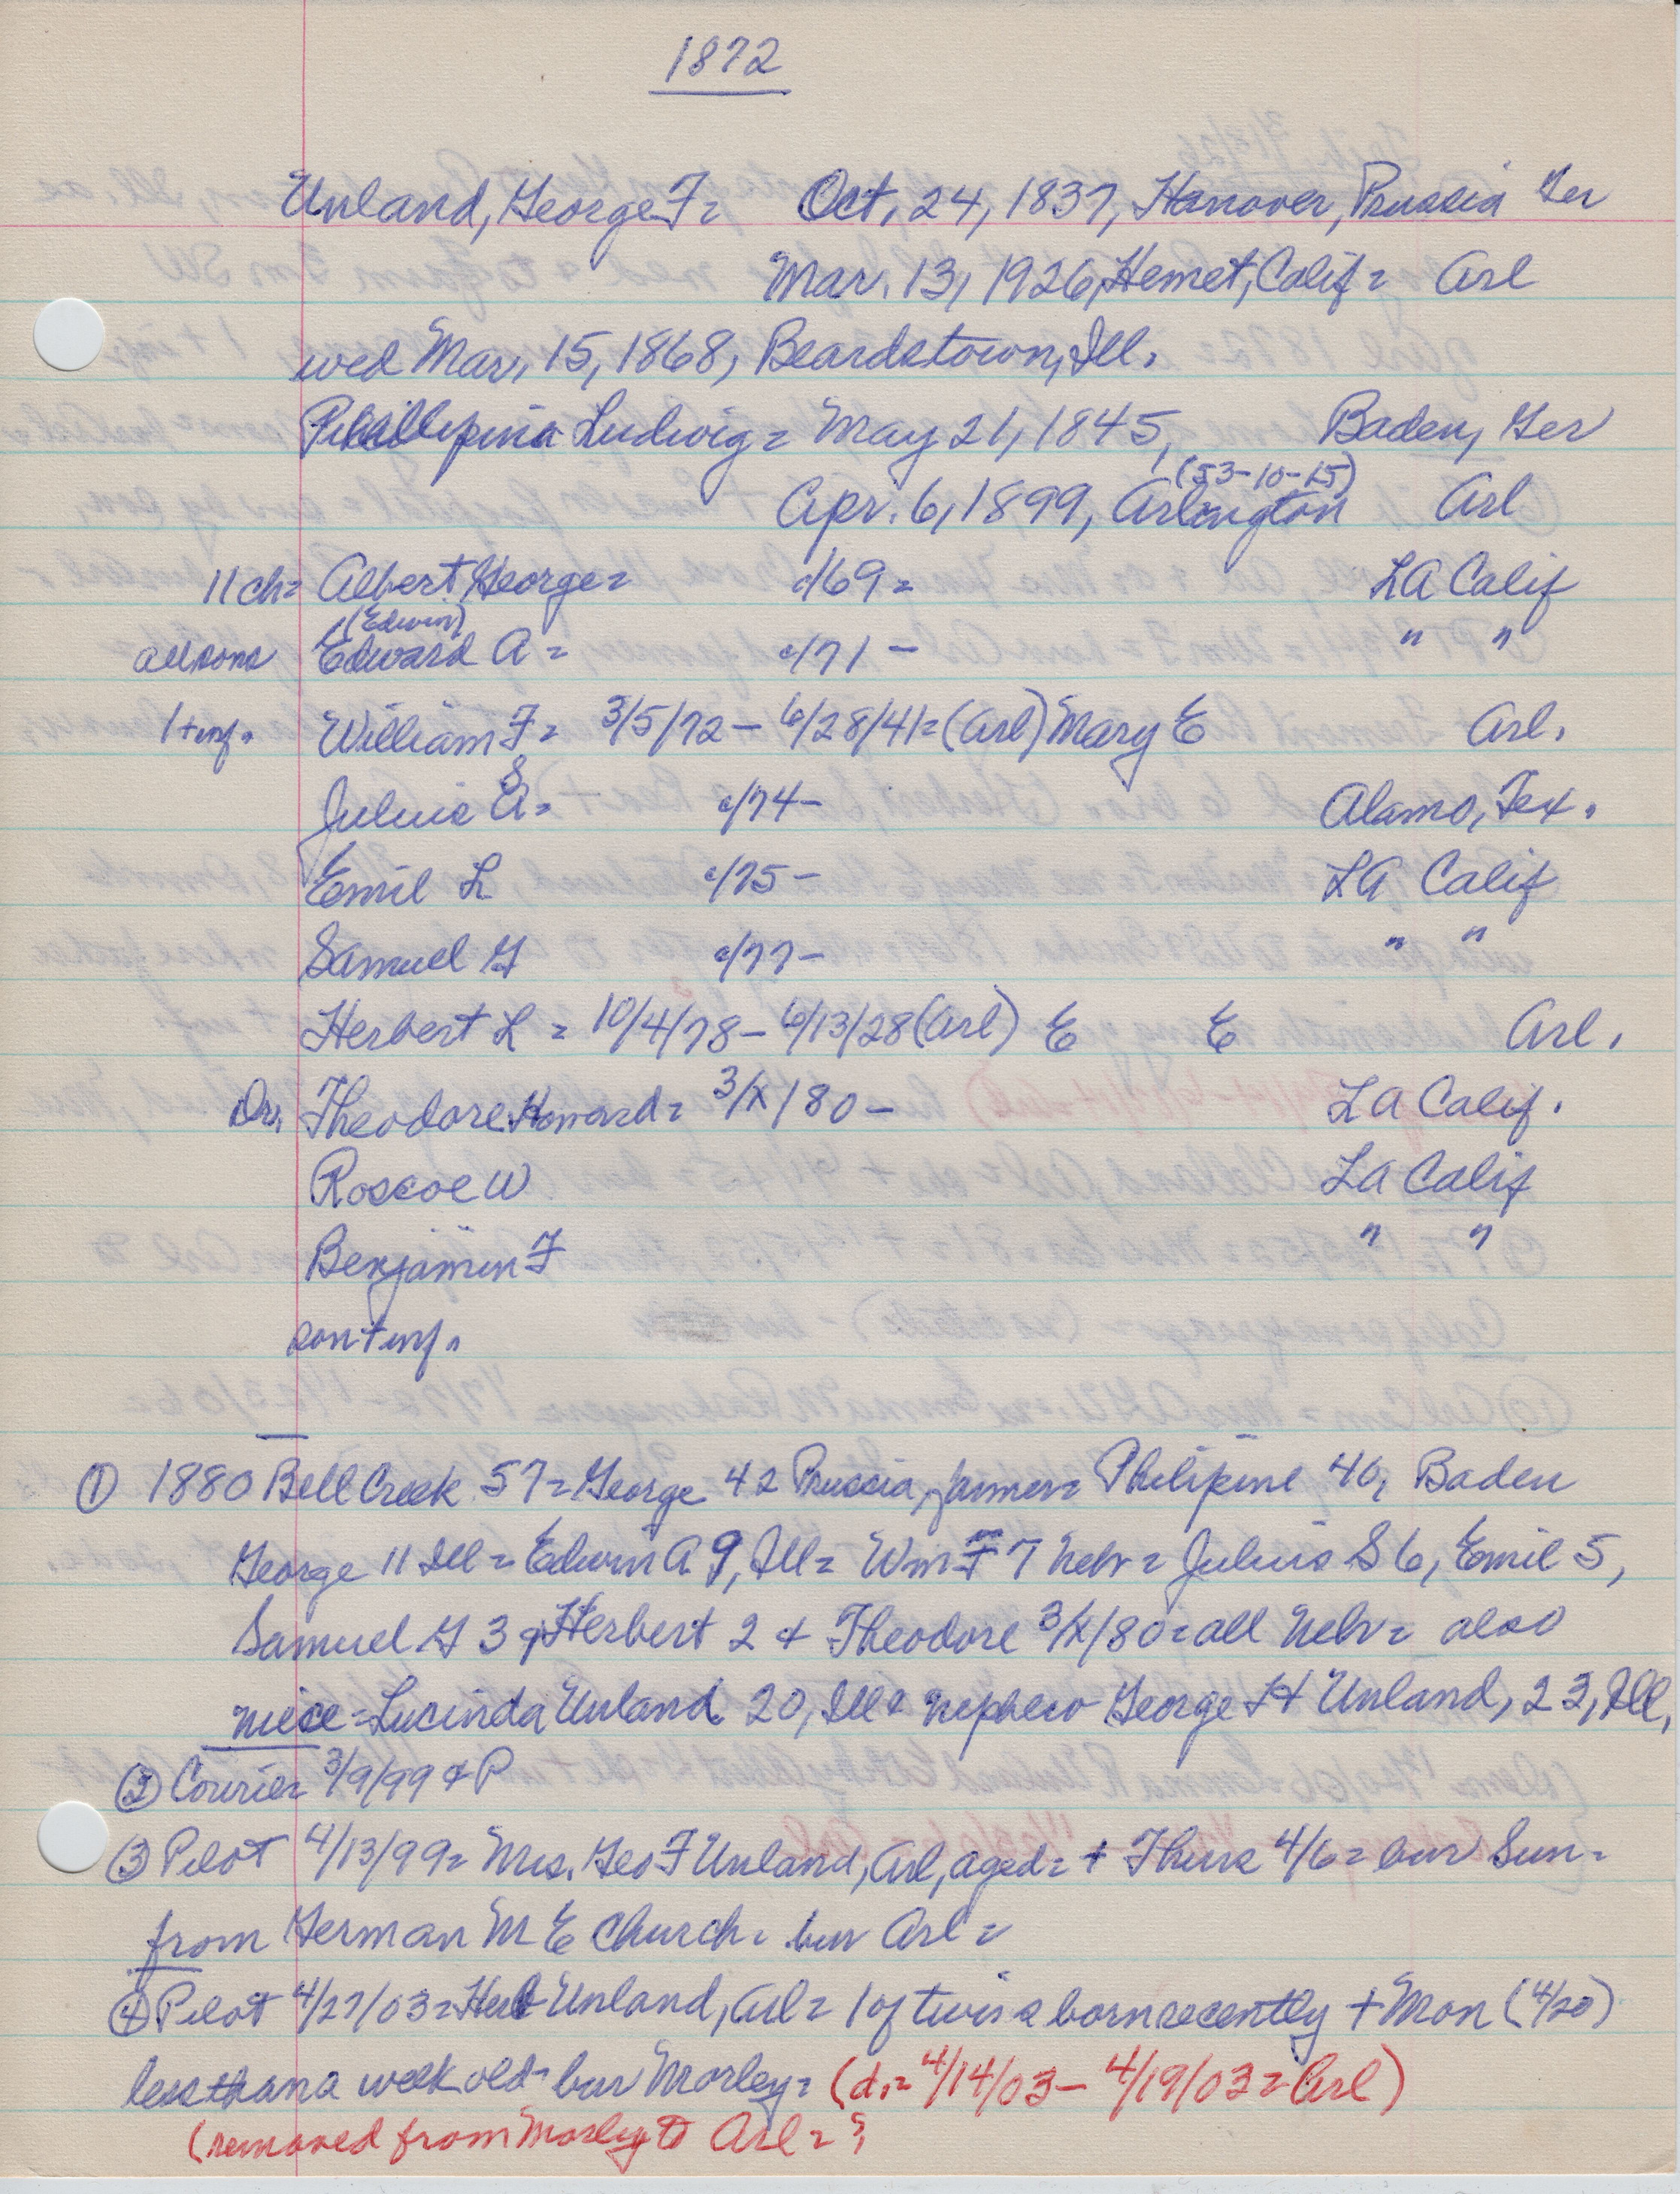 1872
Unland, George F = Oct, 24, 1837, Hanover, Prussia Ger
Mar. 13, 1926, Hemet, Calif = Arl
wed Mar, 15, 1868, Beardstown, Ill.
Phillipina Ludwig = May 21, 1845, Baden, Ger
(53-10-15)
Apr. 6, 1899, Arlington Arl
11 ch = Albert George = c/69 = LA Calif
(Edwin)
all sons Edward A = c/71 - " "
1 + inf. William F = 3/5/72 - 6/28/41 = (Arl) Mary E Arl.
S
Julius A = c/74 - Alamo, Tex.
Emil L c/75 - LA Calif
Samuel G c/77 - " "
Herbert L = 10/4/78 - 6/13/28 (Arl) E E Arl.
Dr. Theodore Howard = 3/x/80 - LA Calif.
Roscoe W LA Calif
Benjamin F " "
son + inf.
① 1880 Bell Creek 57 = George 42 Prussia, farmer = Philipine 40, Baden
George 11 Ill = Edwin A 9, Ill = Wm F 7 Nebr = Julius S 6, Emil 5,
Samuel G 3 & Herbert 2 & Theodore 3/x/80 = all Nebr = also
niece = Lucinda Unland 20, Ill & nephew George H Unland, 23, Ill.
② Courier 3/9/99 & P
③ Pilot 4/13/99 = Mrs. Geo F Unland, Arl, aged = + Thurs 4/6 = bur Sun =
from German M E Church = bur Arl =
④ Pilot 4/27/03 = Herb Unland, Arl = 1 of twins born recently + Mon (4/20)
less than a week old = bur Morley = (d. = 4/14/03 - 4/19/03 = Arl)
(removed from Morley to Arl = ?